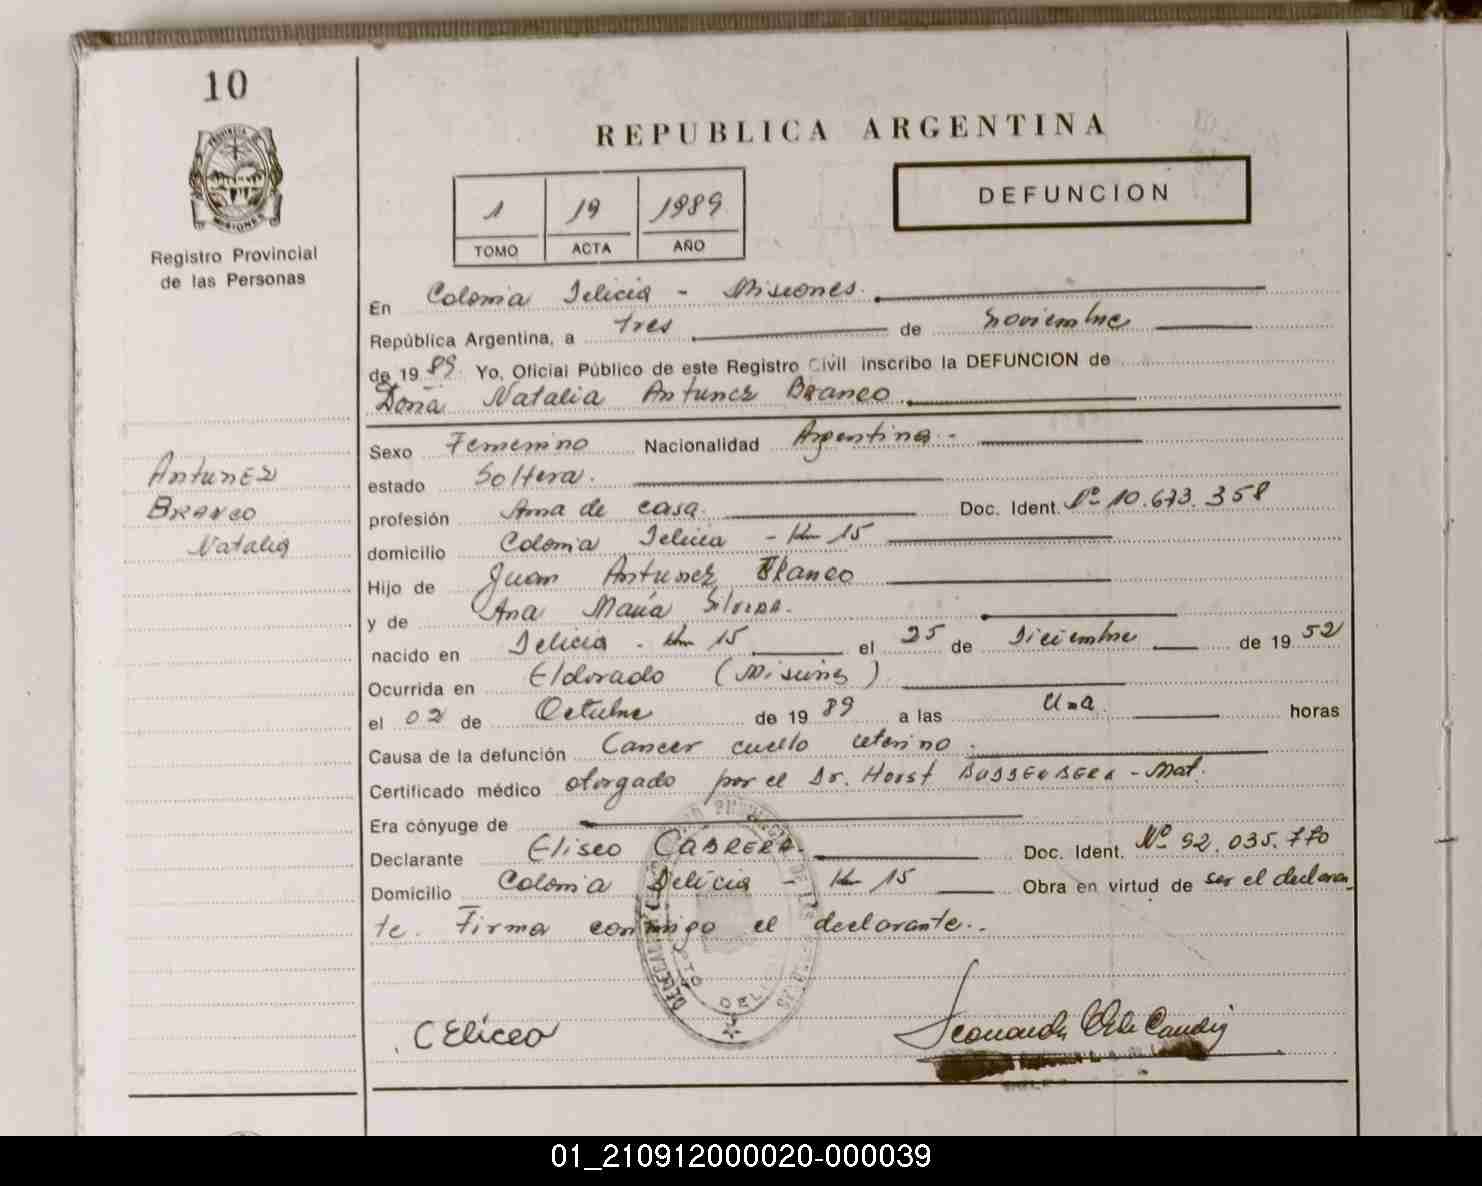 10
PROVINCIA DE
MISIONES
Registro Provincial
de las Personas
REPUBLICA ARGENTINA
1 19 1989
TOMO ACTA AÑO
DEFUNCION
En Colonia Delicia - Misiones.
República Argentina, a tres de noviembre
de 19 89 Yo, Oficial Público de este Registro Civil inscribo la DEFUNCION de
Doña Natalia Antunez Branco
Sexo Femenino Nacionalidad Argentina -
estado Soltera.
profesión Ama de casa. Doc. Ident. Nº 10.673.358
domicilio Colonia Delicia - Km 15
Hijo de Juan Antunez Branco
y de Ana María Silveira.
nacido en Delicia - Km 15 el 25 de Diciembre de 19 52
Ocurrida en Eldorado (Misiones)
el 02 de Octubre de 19 89 a las Una horas
Causa de la defunción Cancer cuello uterino.
Certificado médico otorgado por el Dr. Horst - Mat.
Era cónyuge de
Declarante Eliseo CABRERA. Doc. Ident. Nº 92.035.770
Domicilio Colonia Delicia - Km 15 Obra en virtud de ser el declaran
te. Firma conmigo el declarante..
Antunez
Branco
Natalia
C Eliceo
01_210912000020-000039